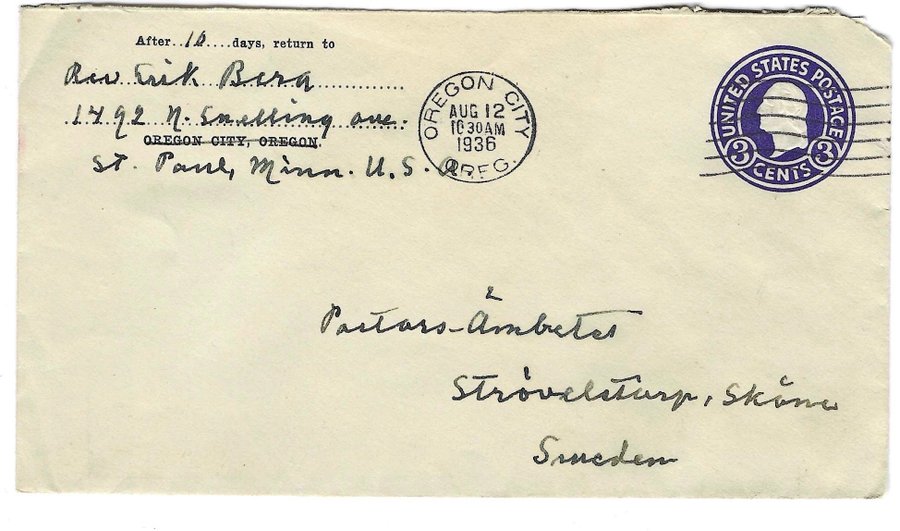 After..10....days, return to
Rev Erik Berg
1492 N. Snelling ave.
OREGON CITY, OREGON.
St. Paul, Minn. U.S.A.
OREGON CITY
AUG 12
10 30 AM
1936
OREG.
UNITED STATES POSTAGE
3 CENTS 3
Pastors-Ämbetet
Strövelstorp, Skåne
Sweden